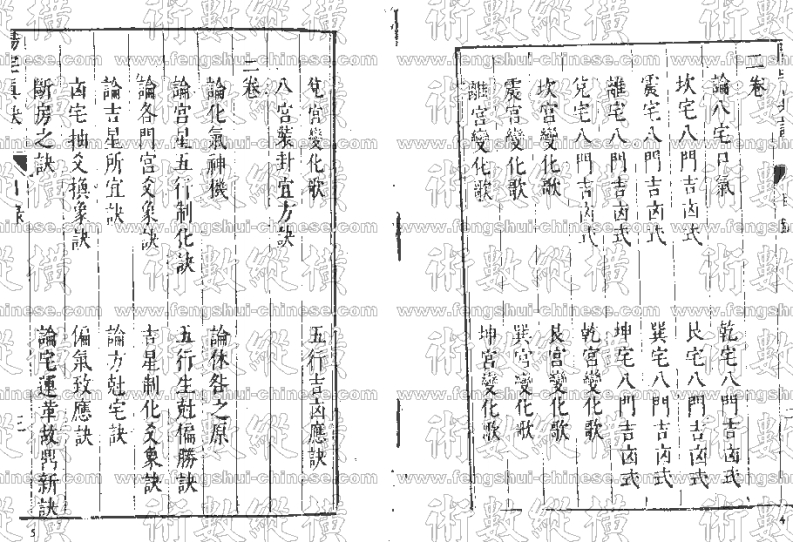 二卷
論八宅口氣
乾宅八門吉凶式
坎宅八門吉凶式
艮宅八門吉凶式
震宅八門吉凶式
巽宅八門吉凶式
離宅八門吉凶式
坤宅八門吉凶式
兌宅八門吉凶式
乾宮變化歌
坎宮變化歌
艮宮變化歌
震宮變化歌
巽宮變化歌
離宮變化歌
坤宮變化歌
4
兌宮變化歌
五行吉凶應訣
八宮裝卦宜方訣
二卷
論化氣神機
論休咎之原
論宮星五行制化訣
五行生尅偏勝訣
論各門宮爻象訣
吉星制化爻象訣
論吉星所宜訣
論方尅宅訣
凶宅抽爻換象訣
偏氣致應訣
斷房之訣
論宅運革故鼎新訣
三
5
術數縱橫
www.fengshui-chinese.com